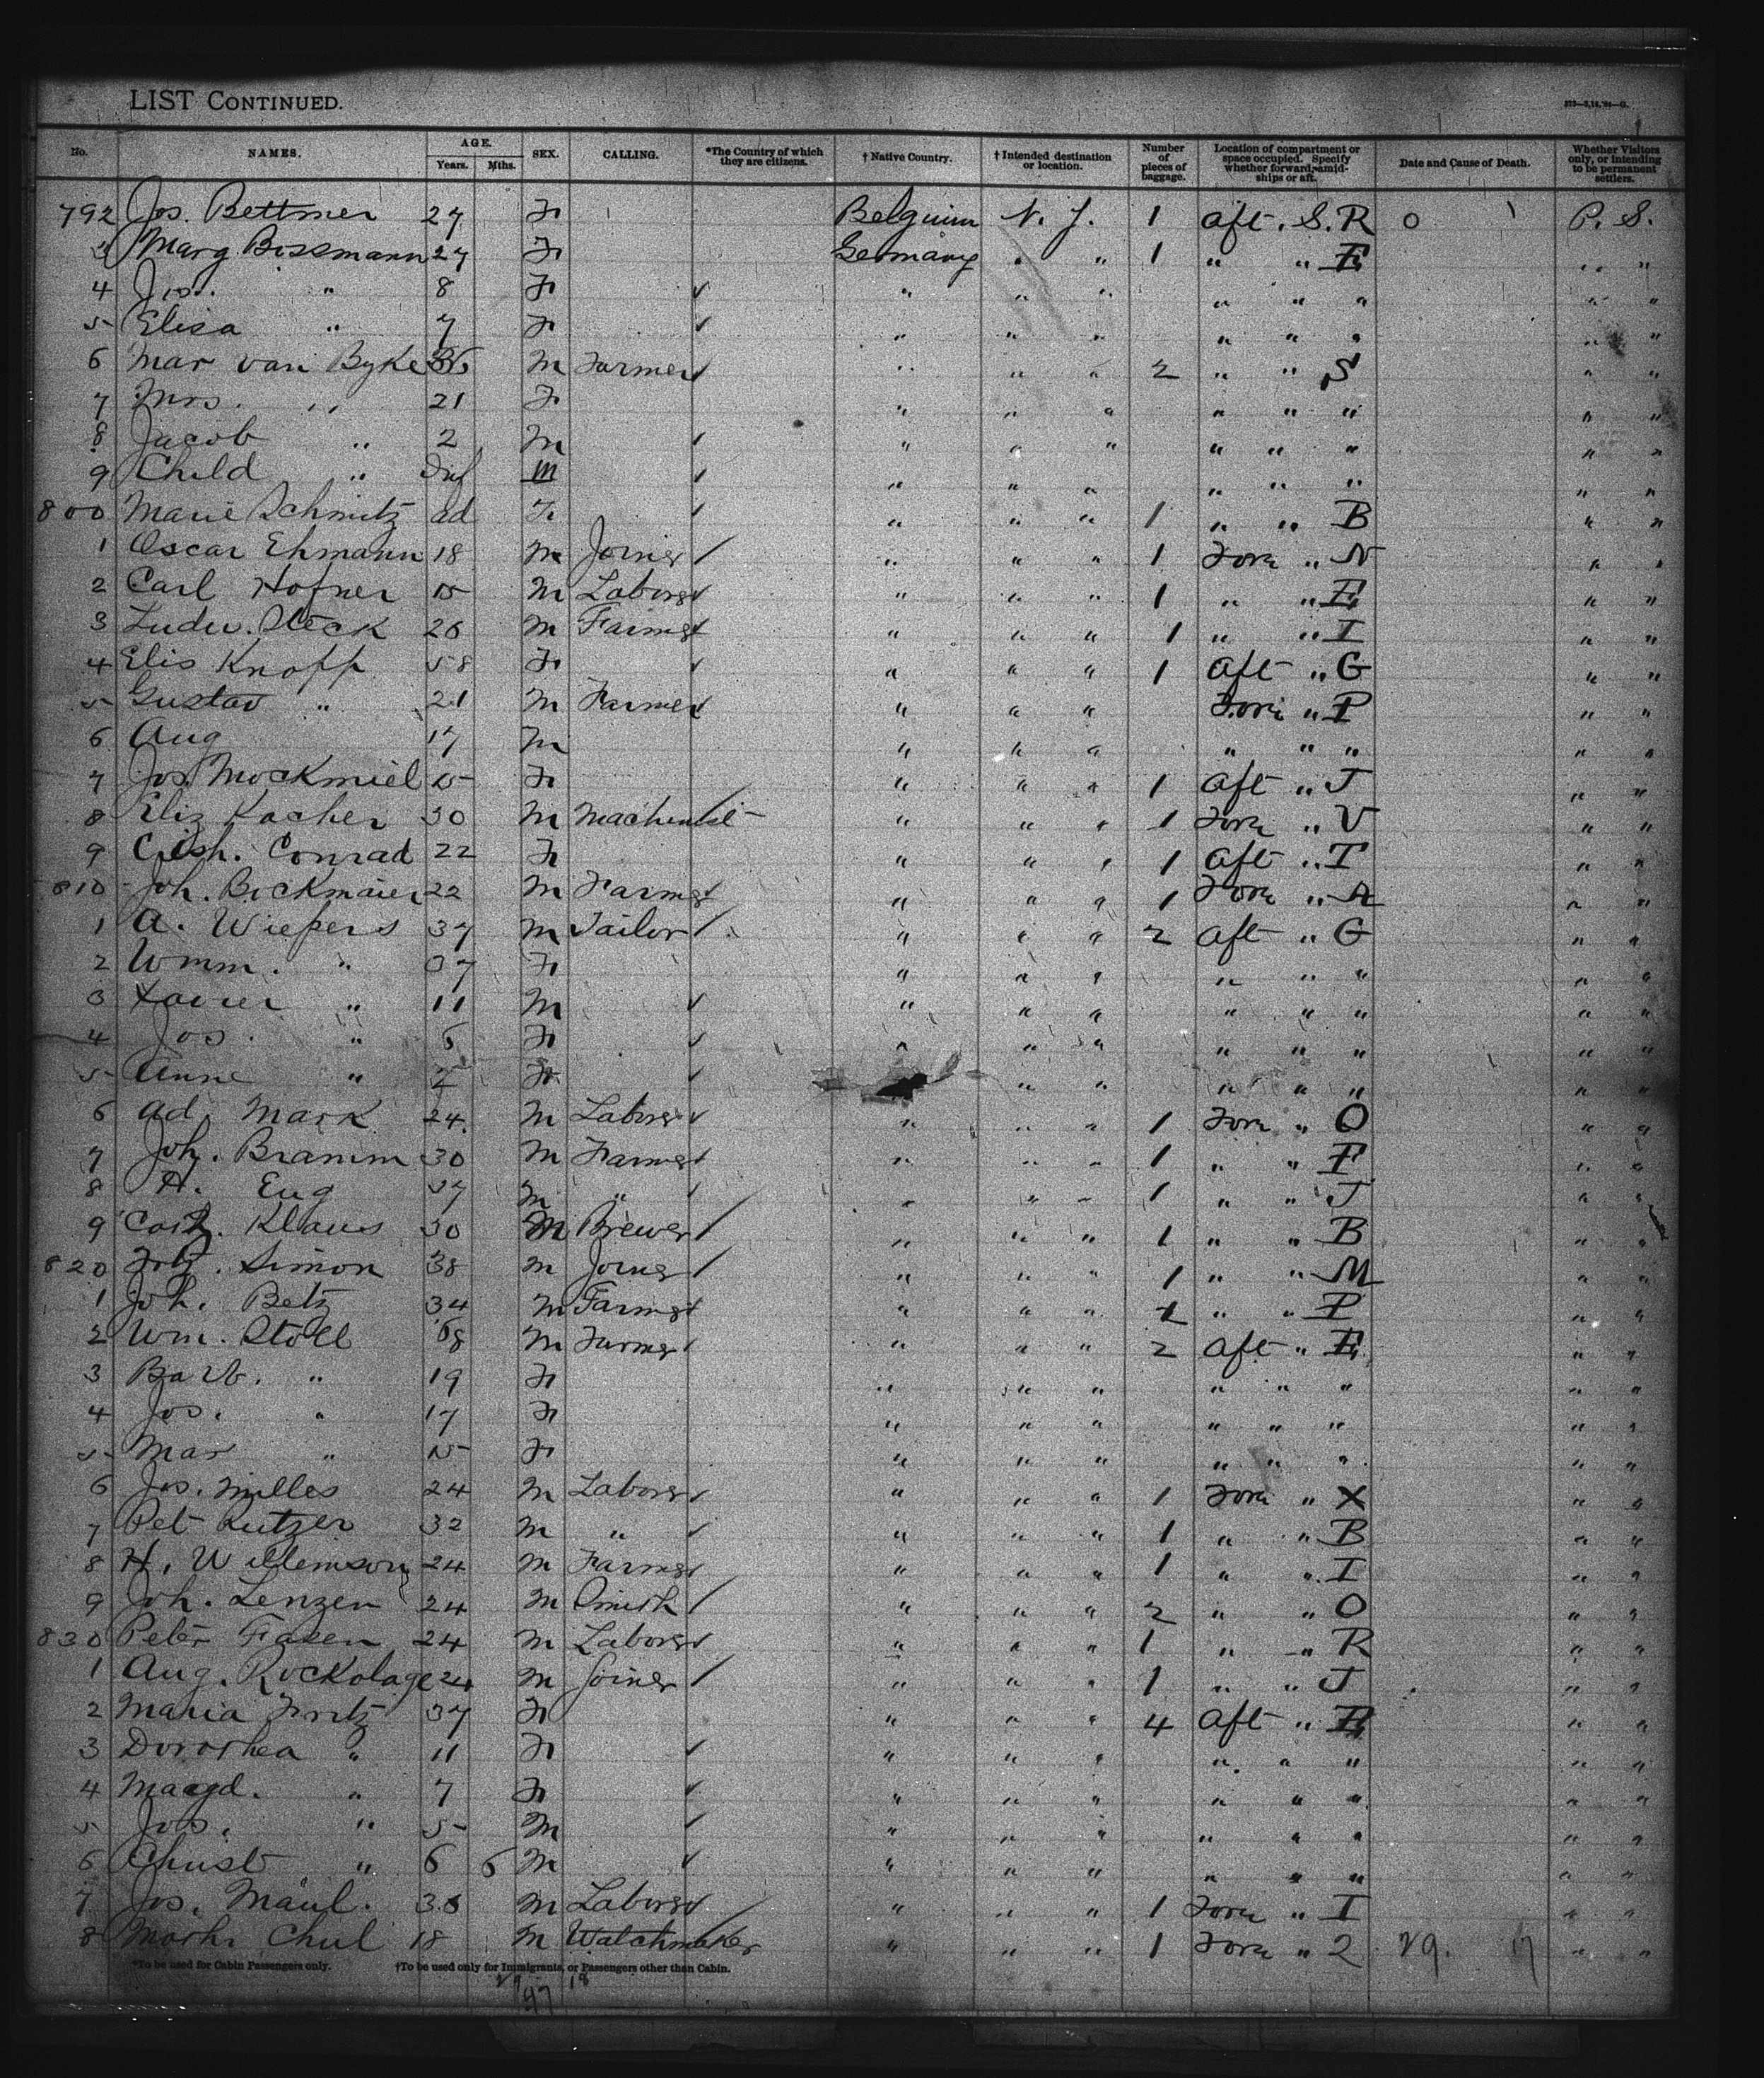 LIST CONTINUED.
No. NAMES. AGE. Years. Mths. SEX. CALLING. *The Country of which they are citizens. † Native Country. † Intended destination or location. Number of pieces of baggage. Location of compartment or space occupied. Specify whether forward, amidships or aft. Date and Cause of Death. Whether Visitors only, or intending to be permanent settlers.
792 Jos. Bettmer 27 F Belguim N. J. 1 aft. S. R 0 P. S.
3 Marg. Bissmann 27 F Germany " " 1 " " E " "
4 Jos. " 8 F " " " " " " " "
5 Elisa " 7 F " " " " " " " "
6 Mar van Byke M Farmer " " " 2 " " S " "
7 Mrs. " 21 F " " " " " " " "
8 Jacob " 2 M " " " " " " " "
9 Child " Inf M " " " " " " " "
800 Marie Schmitz ad F " " " 1 " " B " "
1 Oscar Ehmann 18 M Joiner " " " 1 Forw " N " "
2 Carl Hofner 15 M Laborer " " " 1 " " E " "
3 Ludw. Steck 26 M Farmer " " " 1 " " I " "
4 Elis Knopp 58 F " " " 1 aft " G " "
5 Gustav " 21 M Farmer " " " Forw " P " "
6 Aug 17 M " " " " " " " "
7 Jos. Mockmiel 15 F " " " 1 aft " J " "
8 Eliz Kocher 30 M Machinist " " " 1 Forw " V " "
9 Conrad 22 F " " " 1 aft " T " "
810 Joh. Bickmaier 22 M Farmer " " " 1 Forw " A " "
1 A. Wiepers 37 M Tailor " " " 2 aft " G " "
2 Wmm. " 37 F " " " " " " " "
3 Xavier " 11 M " " " " " " " "
4 Jos. " 6 F " " " " " " " "
5 Anne " 2 F " " " " " " "
6 Ad. Mark 24 M Laborer " " " 1 Forw " O " "
7 Joh. Bramm 30 M Farmer " " " 1 " " F " "
8 H. Eug 37 M " " " " 1 " " J " "
9 Klaus 30 M Brewer " " " 1 " " B " "
820 Simon 38 M Joiner " " " 1 " " M " "
1 Joh. Betz 34 M Farmer " " " 1 " " P " "
2 Wm. Stoll 58 M Farmer " " " 2 aft " E " "
3 Barb. " 19 F " " " " " " " "
4 Jos. " 17 F " " " " " " " "
5 Mar " 15 F " " " " " " " "
6 Jos. Milles 24 M Laborer " " " 1 Forw " X " "
7 Pet Kutzer 32 M " " " " 1 " " B " "
8 H. Willemson 24 M Farmer " " " 1 " " I " "
9 Joh. Lenzen 24 M Smith " " " 2 " " O " "
830 Peter Fasen 24 M Laborer " " " 1 " " R " "
1 Aug. Rockolage 24 M Joiner " " " 1 " " J " "
2 Maria Fritz 37 F " " " 4 aft " E " "
3 Dorothea " 11 F " " " " " " " "
4 Magd. " 7 F " " " " " " " "
5 Jos. " 5 M " " " " " " " "
6 Christ " 6 6 M " " " " " " " "
7 Jos. Maul. 36 M Laborer " " " 1 Forw " I " "
8 Chul 18 M Watchmaker " " " 1 Forw " 2 29. 17 " "
*To be used for Cabin Passengers only. †To be used only for Immigrants, or Passengers other than Cabin.